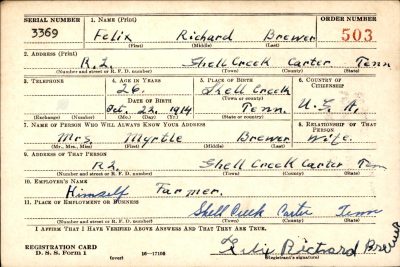 SERIAL NUMBER 1. NAME (Print) ORDER NUMBER
3369 Felix Richard Brewer 503
(First) (Middle) (Last)
2. ADDRESS (Print)
R.2. Shell Creek Carter Tenn
(Number and street or R. F. D. number) (Town) (County) (State)
3. TELEPHONE 4. AGE IN YEARS 5. PLACE OF BIRTH 6. COUNTRY OF CITIZENSHIP
26. Shell Creek
DATE OF BIRTH (Town or county)
Oct. 22, 1914 Tenn. U.S.A.
(Exchange) (Number) (Mo.) (Day) (Yr.) (State or country)
7. NAME OF PERSON WHO WILL ALWAYS KNOW YOUR ADDRESS 8. RELATIONSHIP OF THAT PERSON
Mrs. Myrtle Brewer Wife.
(Mr., Mrs., Miss) (First) (Middle) (Last)
9. ADDRESS OF THAT PERSON
R2. Shell Creek Carter Tenn
(Number and street or R. F. D. number) (Town) (County) (State)
10. EMPLOYER'S NAME
Himself Farmer.
11. PLACE OF EMPLOYMENT OR BUSINESS
Shell Creek Carter Tenn
(Number and street or R. F. D. number) (Town) (County) (State)
I AFFIRM THAT I HAVE VERIFIED ABOVE ANSWERS AND THAT THEY ARE TRUE.
REGISTRATION CARD Felix Richard Brewer
D. S. S. Form 1 (over) 16—17105 (Registrant's signature)